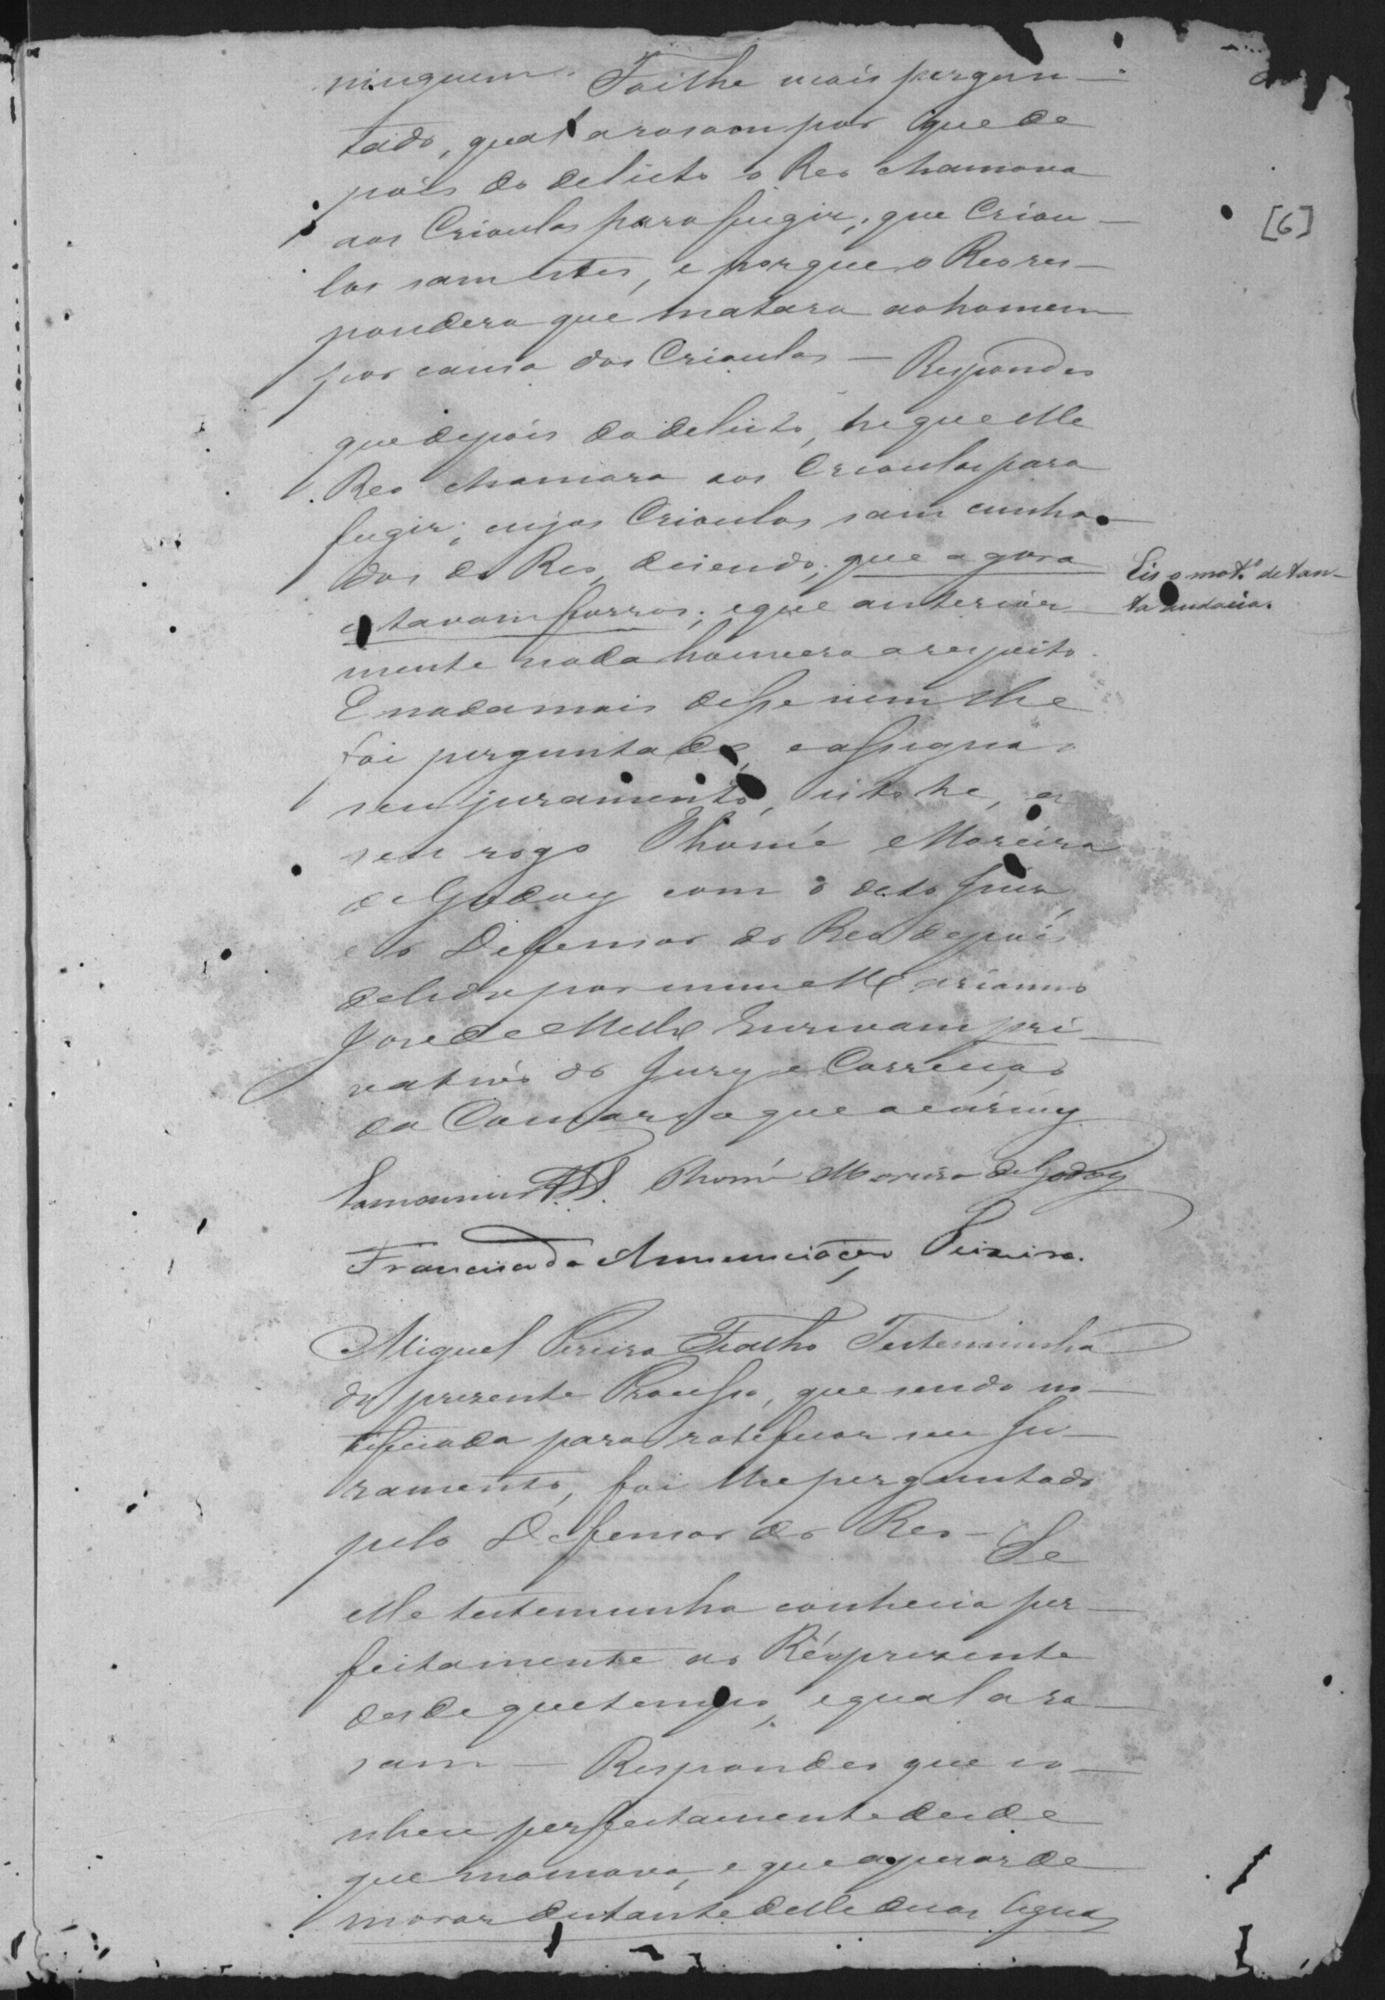 ninguem. Foi lhe mais pergun-
tado, qual a rasaon por que de
pois do delicto o Reo chamava
aos Crioulos para fugir, que Criou-
los sam estes, e porque o Reo res-
pondera que matara ao homem
por causa dos Crioulos — Respondeo
que depois do delicto, he que elle
Reo chamara aos Crioulos para
fugir; cujos Crioulos sam cunha-
dos do Reo, disendo; que agora
estavam forros; e que anterior
mente nada houvera a respeito.
E nada mais disse nem lhe
foi perguntado, e assigna o
seu juramento, isto he, a
seu rogo Thomé Moreira
de Godoy com o dito Juiz,
e o Defensor do Reo depois
de lido por mim Marianno
Jose de Mello Escrivam pri-
vativo do Jury e Correição
da Comarca que a escrevy
Thomé Moreira de Godoy
Francisco da Annunciação Teixeira.
Miguel Pereira Fialho Testemunha
do prezente Processo, que sendo no-
tificada para ratificar seu Ju-
ramento, foi lhe perguntado
pelo Defensor do Reo — Se
elle testemunha conhecia per-
feitamente ao Réo prezente
desde que tempo, e qual a ra-
sam — Respondeo que co-
nhece perfeitamente desde
que mamava, e que apesar de
morar distante delle duas legoas
[6]
Eis o mot.º de tan-
ta audacia.